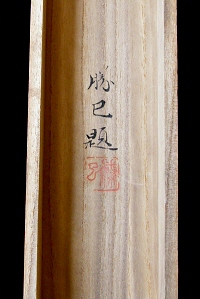 勝巳題